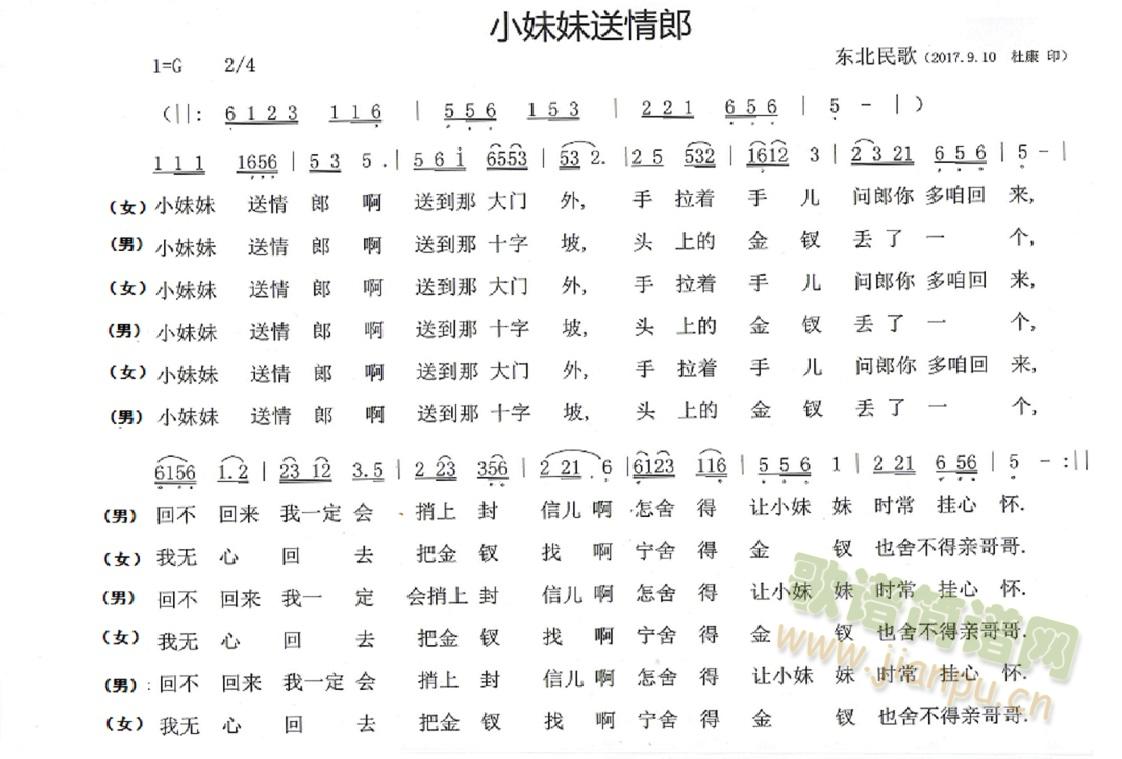 小妹妹送情郎
东北民歌(2017.9.10 杜康 印)
1=G 2/4
(||: 6 1 2 3 1 1 6 | 5 5 6 1 5 3 | 2 2 1 6 5 6 | 5 - | )
1 1 1 1656 | 5 3 5 . | 5 6 i 6553 | 53 2. | 2 5 532 | 1612 3 | 2 3 21 6 5 6 | 5 - |
(女) 小妹妹 送情 郎 啊 送到那 大门 外, 手 拉着 手 儿 问郎你 多咱回 来,
(男) 小妹妹 送情 郎 啊 送到那 十字 坡, 头 上的 金 钗 丢 了 一 个,
(女) 小妹妹 送情 郎 啊 送到那 大门 外, 手 拉着 手 儿 问郎你 多咱回 来,
(男) 小妹妹 送情 郎 啊 送到那 十字 坡, 头 上的 金 钗 丢 了 一 个,
(女) 小妹妹 送情 郎 啊 送到那 大门 外, 手 拉着 手 儿 问郎你 多咱回 来,
(男) 小妹妹 送情 郎 啊 送到那 十字 坡, 头 上的 金 钗 丢 了 一 个,
6156 1.2 | 23 12 3.5 | 2 23 356 | 2 21 . 6 | 6123 116 | 5 5 6 1 | 2 21 6 56 | 5 - :||
(男) 回不 回来 我一定 会 捎上 封 信儿 啊 怎舍 得 让小妹 妹 时常 挂心 怀.
(女) 我无 心 回 去 把金 钗 找 啊 宁舍 得 金 钗 也舍不得亲哥哥.
(男) 回不 回来 我一 定 会捎上 封 信儿 啊 怎舍 得 让小妹 妹 时常 挂心 怀.
(女) 我无 心 回 去 把金 钗 找 啊 宁舍 得 金 钗 也舍不得亲哥哥.
(男) : 回不 回来 我一定 会 捎上 封 信儿 啊 怎舍 得 让小妹 妹 时常 挂心 怀.
(女) 我无 心 回 去 把金 钗 找 啊 宁舍 得 金 钗 也舍不得亲哥哥.
歌谱简谱网
www.jianpu.cn